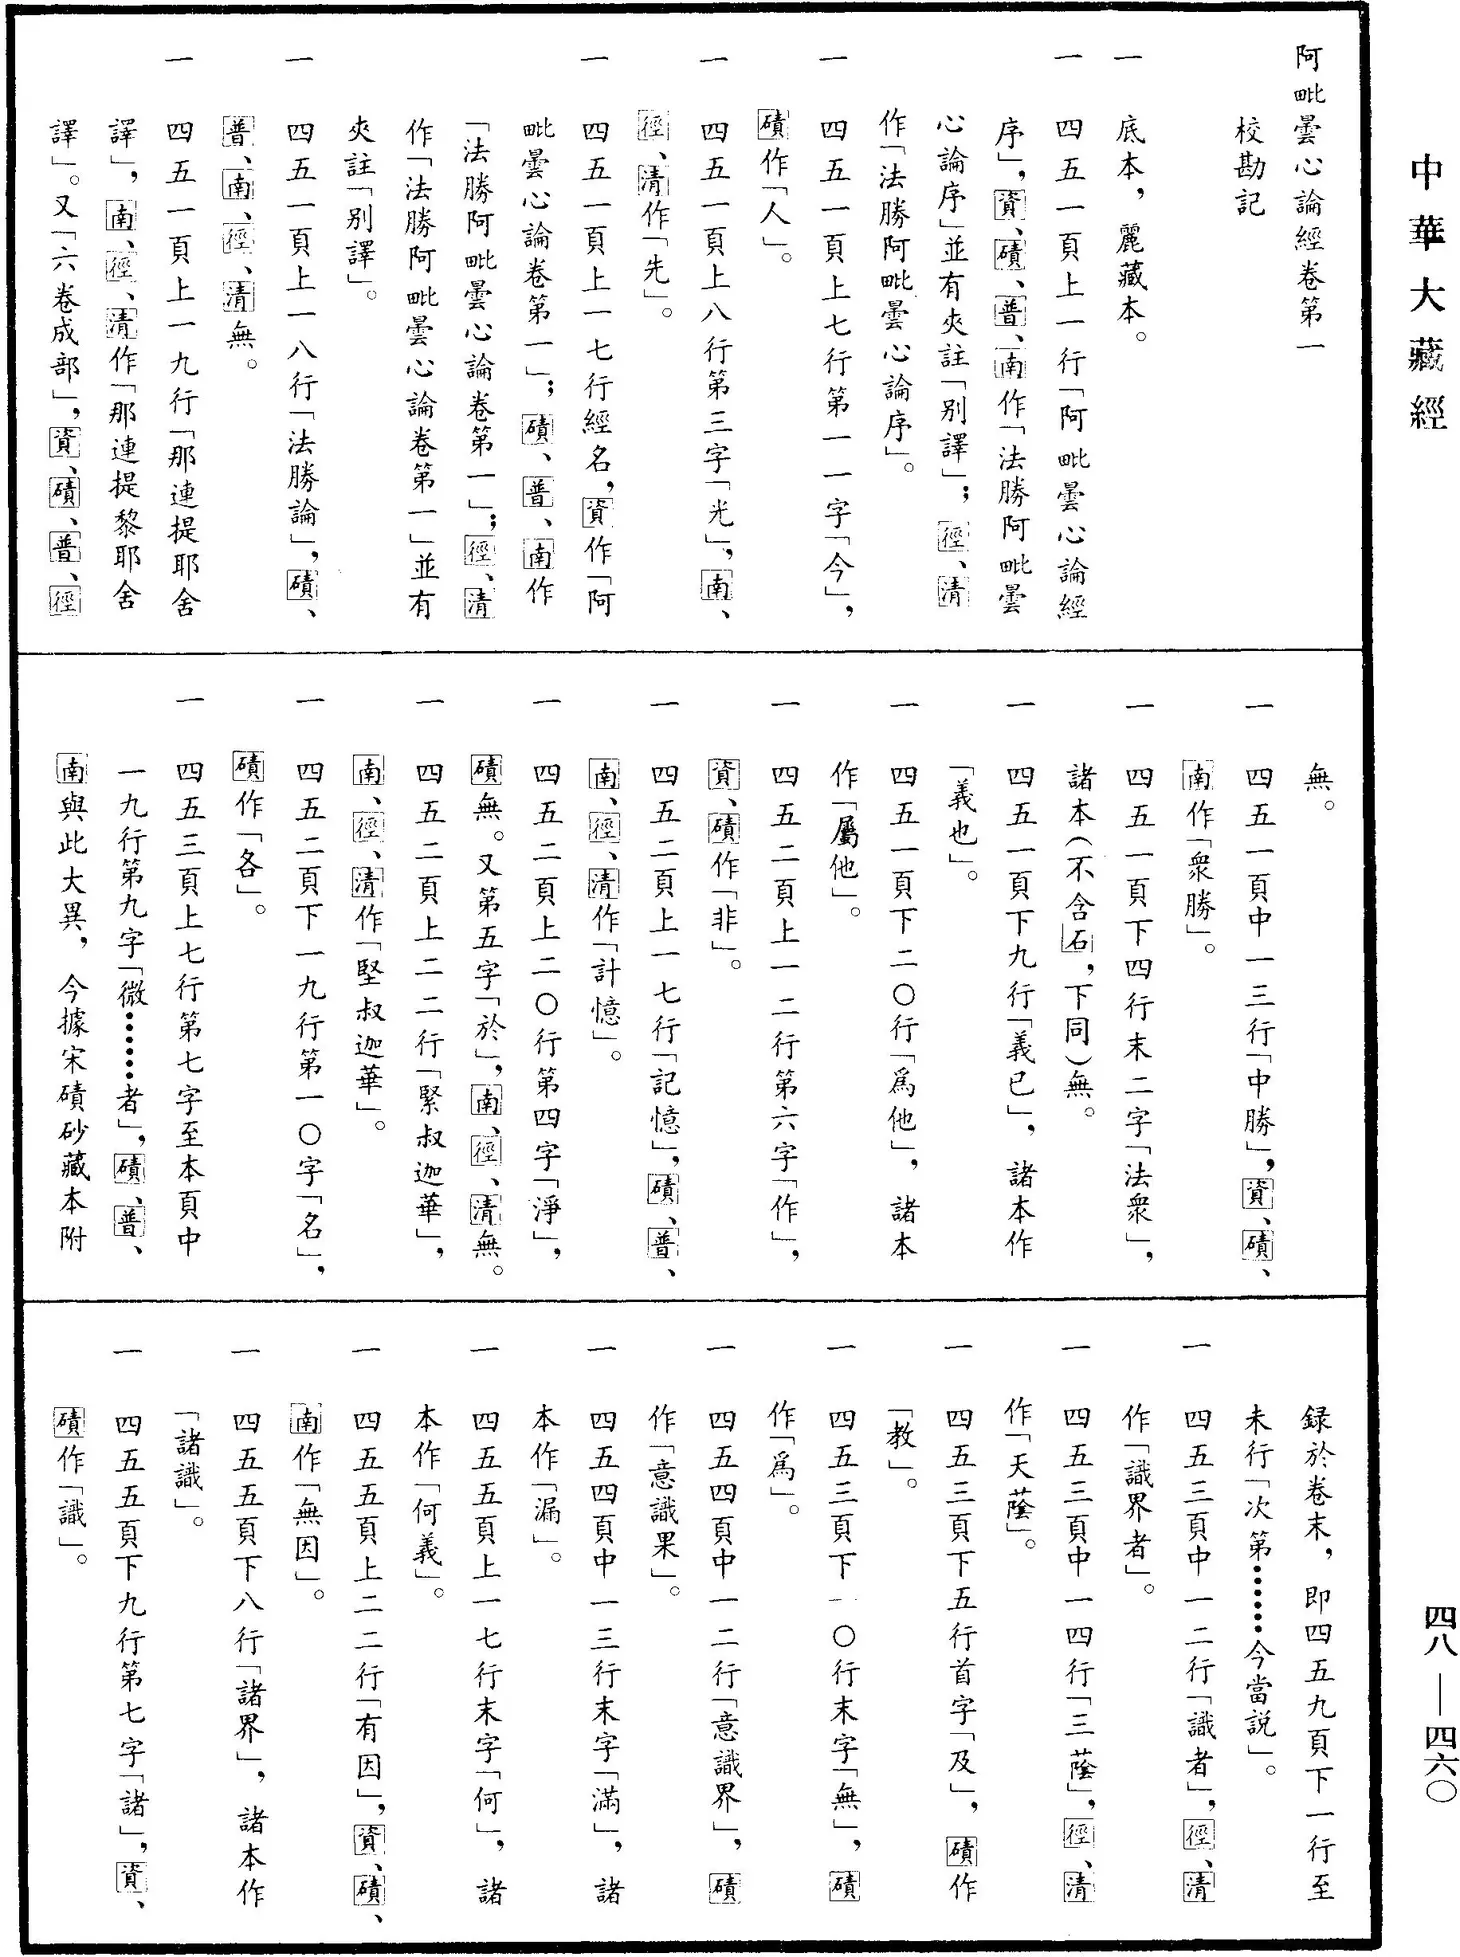 中華大藏經
阿毗曇心論經卷第一
校勘記
一 底本，麗藏本。
一 四五一頁上一行「阿毗曇心論經
序」，資、磧、普、南作「法勝阿毗曇
心論序」並有夾註「別譯」；徑、清
作「法勝阿毗曇心論序」。
一 四五一頁上七行第一一字「今」，
磧作「人」。
一 四五一頁上八行第三字「光」，南、
徑、清作「先」。
一 四五一頁上一七行經名，資作「阿
毗曇心論卷第一」；磧、普、南作
「法勝阿毗曇心論卷第一」；徑、清
作「法勝阿毗曇心論卷第一」並有
夾註「別譯」。
一 四五一頁上一八行「法勝論」，磧、
普、南、徑、清無。
一 四五一頁上一九行「那連提耶舍
譯」，南、徑、清作「那連提黎耶舍
譯」。又「六卷成部」，資、磧、普、徑
無。
一 四五一頁中一三行「中勝」，資、磧、
南作「衆勝」。
一 四五一頁下四行末二字「法衆」，
諸本（不含石，下同）無。
一 四五一頁下九行「義已」，諸本作
「義也」。
一 四五一頁下二〇行「爲他」，諸本
作「屬他」。
一 四五二頁上一二行第六字「作」，
資、磧作「非」。
一 四五二頁上一七行「記憶」，磧、普、
南、徑、清作「計憶」。
一 四五二頁上二〇行第四字「淨」，
磧無。又第五字「於」，南、徑、清無。
一 四五二頁上二二行「緊叔迦華」，
南、徑、清作「堅叔迦華」。
一 四五二頁下一九行第一〇字「名」，
磧作「各」。
一 四五三頁上七行第七字至本頁中
一九行第九字「微……者」，磧、普、
南與此大異，今據宋磧砂藏本附
録於卷末，即四五九頁下一行至
末行「次第……今當説」。
一 四五三頁中一二行「識者」，徑、清
作「識界者」。
一 四五三頁中一四行「三蔭」，徑、清
作「天蔭」。
一 四五三頁下五行首字「及」，磧作
「教」。
一 四五三頁下一〇行末字「無」，磧
作「爲」。
一 四五四頁中一二行「意識界」，磧
作「意識果」。
一 四五四頁中一三行末字「滿」，諸
本作「漏」。
一 四五五頁上一七行末字「何」，諸
本作「何義」。
一 四五五頁上二二行「有因」，資、磧、
南作「無因」。
一 四五五頁下八行「諸界」，諸本作
「諸識」。
一 四五五頁下九行第七字「諸」，資、
磧作「識」。
四八—四六〇